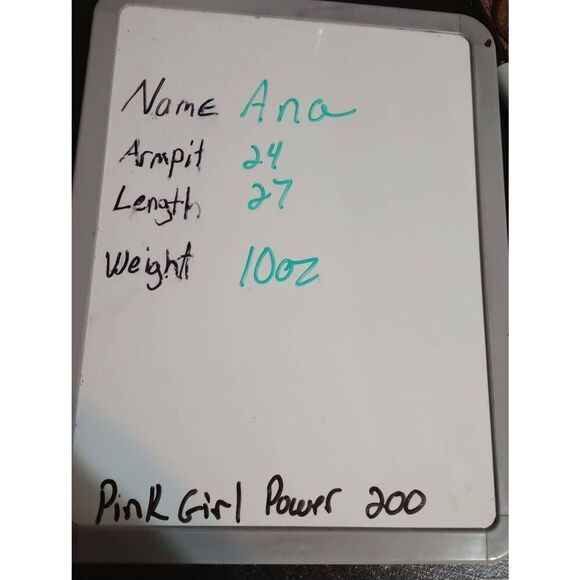 Name Ana
Armpit 24
Length 27
Weight 10oz
Pink Girl Power 200